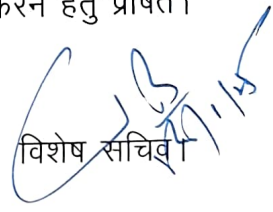 करने हेतु प्रेषित।
विशेष सचिव।